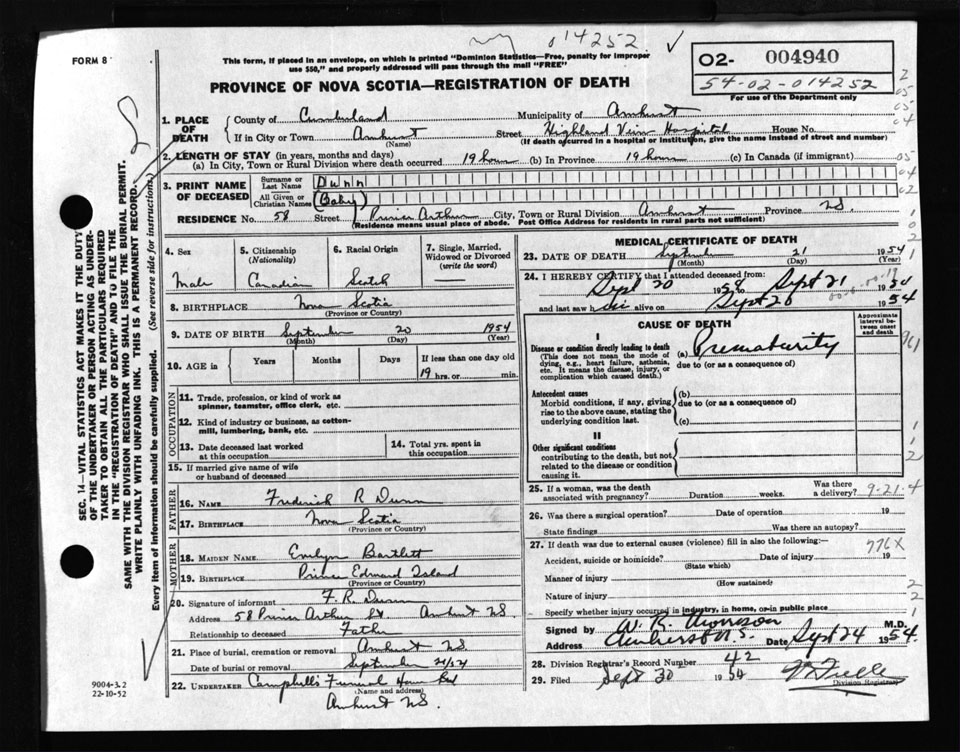 014252 ✓
FORM 8
This form, if placed in an envelope, on which is printed "Dominion Statistics—Free, penalty for improper
use $50," and properly addressed will pass through the mail "FREE"
O2- 004940
54-02-014252
For use of the Department only
PROVINCE OF NOVA SCOTIA—REGISTRATION OF DEATH
1. PLACE OF DEATH
County of Cumberland Municipality of Amherst
If in City or Town Amherst Street Highland View Hospital House No.
(Name) (If death occurred in a hospital or institution, give the name instead of street and number)
2. LENGTH OF STAY (in years, months and days)
(a) In City, Town or Rural Division where death occurred 19 hours (b) In Province 19 hours (c) In Canada (if immigrant)
3. PRINT NAME OF DECEASED
Surname or Last Name Dunn
All Given or Christian Names (Baby)
RESIDENCE No. 58 Street Prince Arthur City, Town or Rural Division Amherst Province N.S.
(Residence means usual place of abode. Post Office Address for residents in rural parts not sufficient)
4. Sex
Male
5. Citizenship
(Nationality)
Canadian
6. Racial Origin
Scotch
7. Single, Married, Widowed or Divorced
(write the word)
—
8. BIRTHPLACE Nova Scotia
(Province or Country)
9. DATE OF BIRTH September 20 1954
(Month) (Day) (Year)
10. AGE in Years Months Days If less than one day old
19 hrs. or min.
OCCUPATION
11. Trade, profession, or kind of work as
spinner, teamster, office clerk, etc.
12. Kind of industry or business, as cotton-
mill, lumbering, bank, etc.
13. Date deceased last worked
at this occupation
14. Total yrs. spent in
this occupation
15. If married give name of wife
or husband of deceased
FATHER
16. NAME Frederick R Dunn
17. BIRTHPLACE Nova Scotia
(Province or Country)
MOTHER
18. MAIDEN NAME Evelyn Bartlett
19. BIRTHPLACE Prince Edward Island
(Province or Country)
20. Signature of informant F. R. Dunn
Address 58 Prince Arthur St Amherst N.S.
Relationship to deceased Father
21. Place of burial, cremation or removal Amherst N.S.
Date of burial or removal September
22. UNDERTAKER Campbell's Funeral Home
(Name and address)
Amherst N.S.
MEDICAL CERTIFICATE OF DEATH
23. DATE OF DEATH September 21 1954
(Month) (Day) (Year)
24. I HEREBY CERTIFY that I attended deceased from:
Sept 20 1954 to Sept 21 1954
and last saw h alive on Sept 20 1954
CAUSE OF DEATH
Approximate interval between onset and death
I
Disease or condition directly leading to death
(This does not mean the mode of
dying, e.g., heart failure, asthenia,
etc. It means the disease, injury, or
complication which caused death.)
(a) Prematurity
due to (or as a consequence of)
Antecedent causes
Morbid conditions, if any, giving
rise to the above cause, stating the
underlying condition last.
(b)
due to (or as a consequence of)
(c)
II
Other significant conditions
contributing to the death, but not
related to the disease or condition
causing it.
25. If a woman, was the death
associated with pregnancy? Duration weeks. Was there a delivery? 9-21-4
26. Was there a surgical operation? Date of operation 19
State findings Was there an autopsy?
27. If death was due to external causes (violence) fill in also the following: 776X
Accident, suicide or homicide? Date of injury 19
(State which)
Manner of injury
(How sustained)
Nature of injury
Specify whether injury occurred in industry, in home, or in public place
Signed by M.D.
Amherst N.S. Date Sept 24 1954
28. Division Registrar's Record Number 42
29. Filed Sept 30 1954
Division Registrar
SEC. 14—VITAL STATISTICS ACT MAKES IT THE DUTY
OF THE UNDERTAKER OR PERSON ACTING AS UNDER-
TAKER TO OBTAIN ALL THE PARTICULARS REQUIRED
IN THE "REGISTRATION OF DEATH" AND TO FILE THE
SAME WITH THE DIVISION REGISTRAR WHO SHALL ISSUE THE BURIAL PERMIT.
WRITE PLAINLY WITH UNFADING INK. THIS IS A PERMANENT RECORD.
Every item of information should be carefully supplied. (See reverse side for instructions.)
9004-3.2
22-10-52